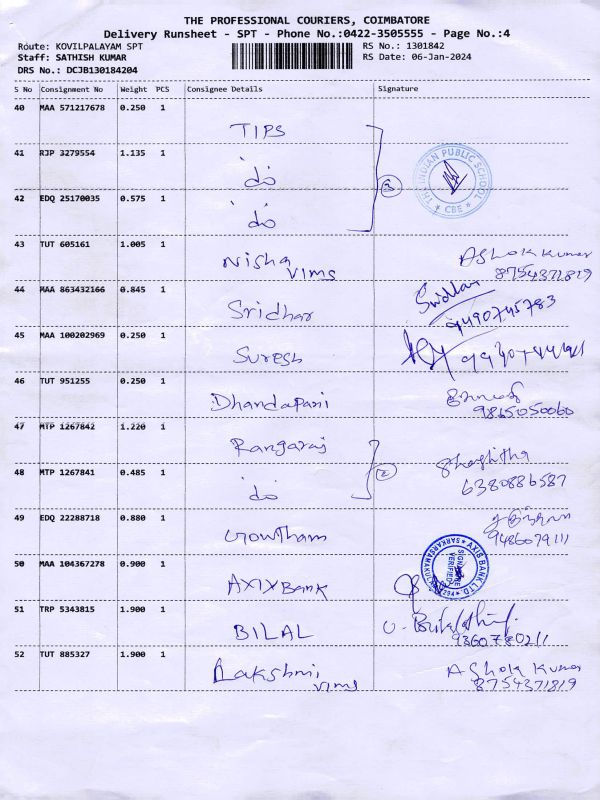 THE PROFESSIONAL COURIERS, COIMBATORE
Delivery Runsheet - SPT - Phone No.:0422-3505555 - Page No.:4
Route: KOVILPALAYAM SPT RS No.: 1301842
Staff: SATHISH KUMAR RS Date: 06-Jan-2024
DRS No.: DCJB130184204
S No Consignment No Weight PCS Consignee Details Signature
40 MAA 571217678 0.250 1
TIPS
41 RJP 3279554 1.135 1
do THE INDIAN PUBLIC SCHOOL
3 * CBE *
42 EDQ 25170035 0.575 1
do
43 TUT 605161 1.005 1
Nisha Ashok Kumar
VIMS 8754371819
44 MAA 863432166 0.845 1
Sridhar Sridhar
9490745783
45 MAA 100202969 0.250 1
Suresh
46 TUT 951255 0.250 1
Dhandapani
9865050060
47 MTP 1267842 1.220 1
Rangaraj
48 MTP 1267841 0.485 1
do 2 6380886587
49 EDQ 22288718 0.880 1
Gowtham 9486079111
50 MAA 104367278 0.900 1
AXIX Bank AXIS BANK LTD
SIGNATURE VERIFIED
51 TRP 5343815 1.900 1
BILAL
9360780211
52 TUT 885327 1.900 1
Lakshmi Ashok Kumar
VIMS 8754371819